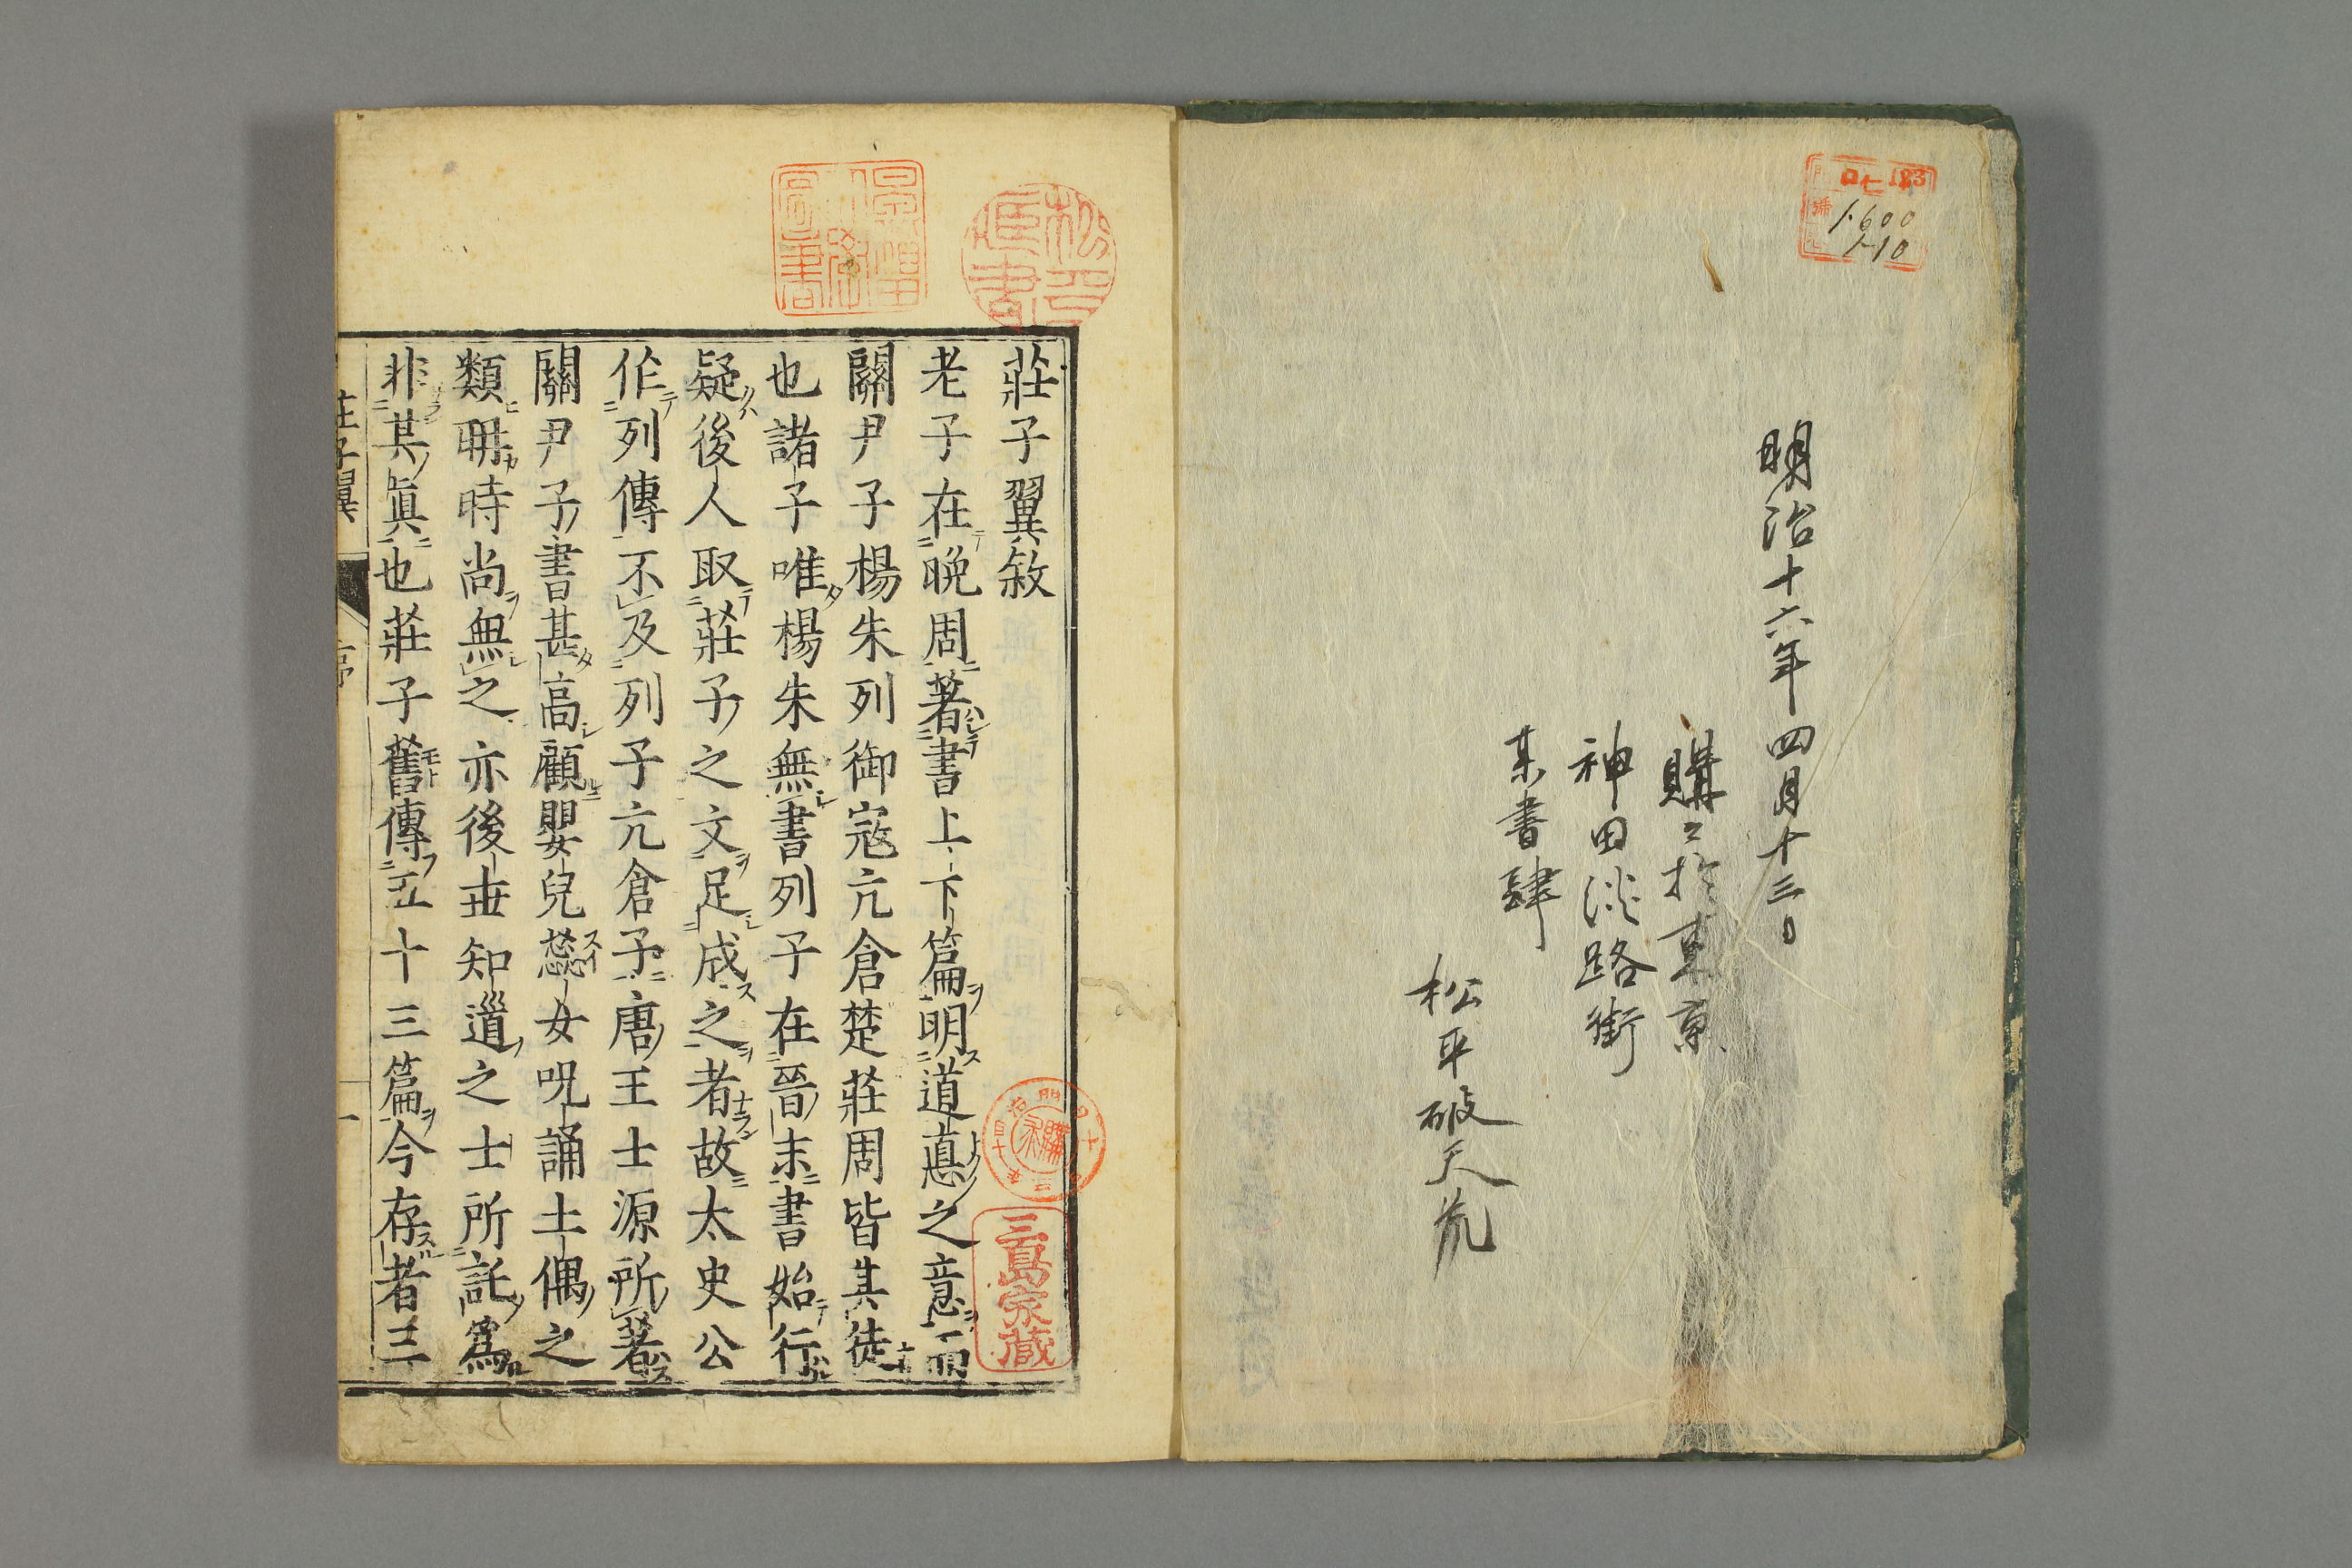 ロ七 183
1.600
1-10
明治十六年四月十三日
購之於東京
神田淡路街
某書肆
松平破天荒
莊子翼敘
老子在晩周著書上下篇明道悳之意而
關尹子楊朱列御寇亢倉楚莊周皆其徒
也諸子唯楊朱無書列子在晉末書始行
疑後人取莊子之文足成之者故太史公
作列傳不及列子亢倉子唐王士源所著
關尹子書甚高顧嬰兒蕊女呪誦土偶之
類聃時尚無之亦後世知道之士所託爲
非其眞也莊子舊傳五十三篇今存者三
莊子翼
序
一
三島家蔵